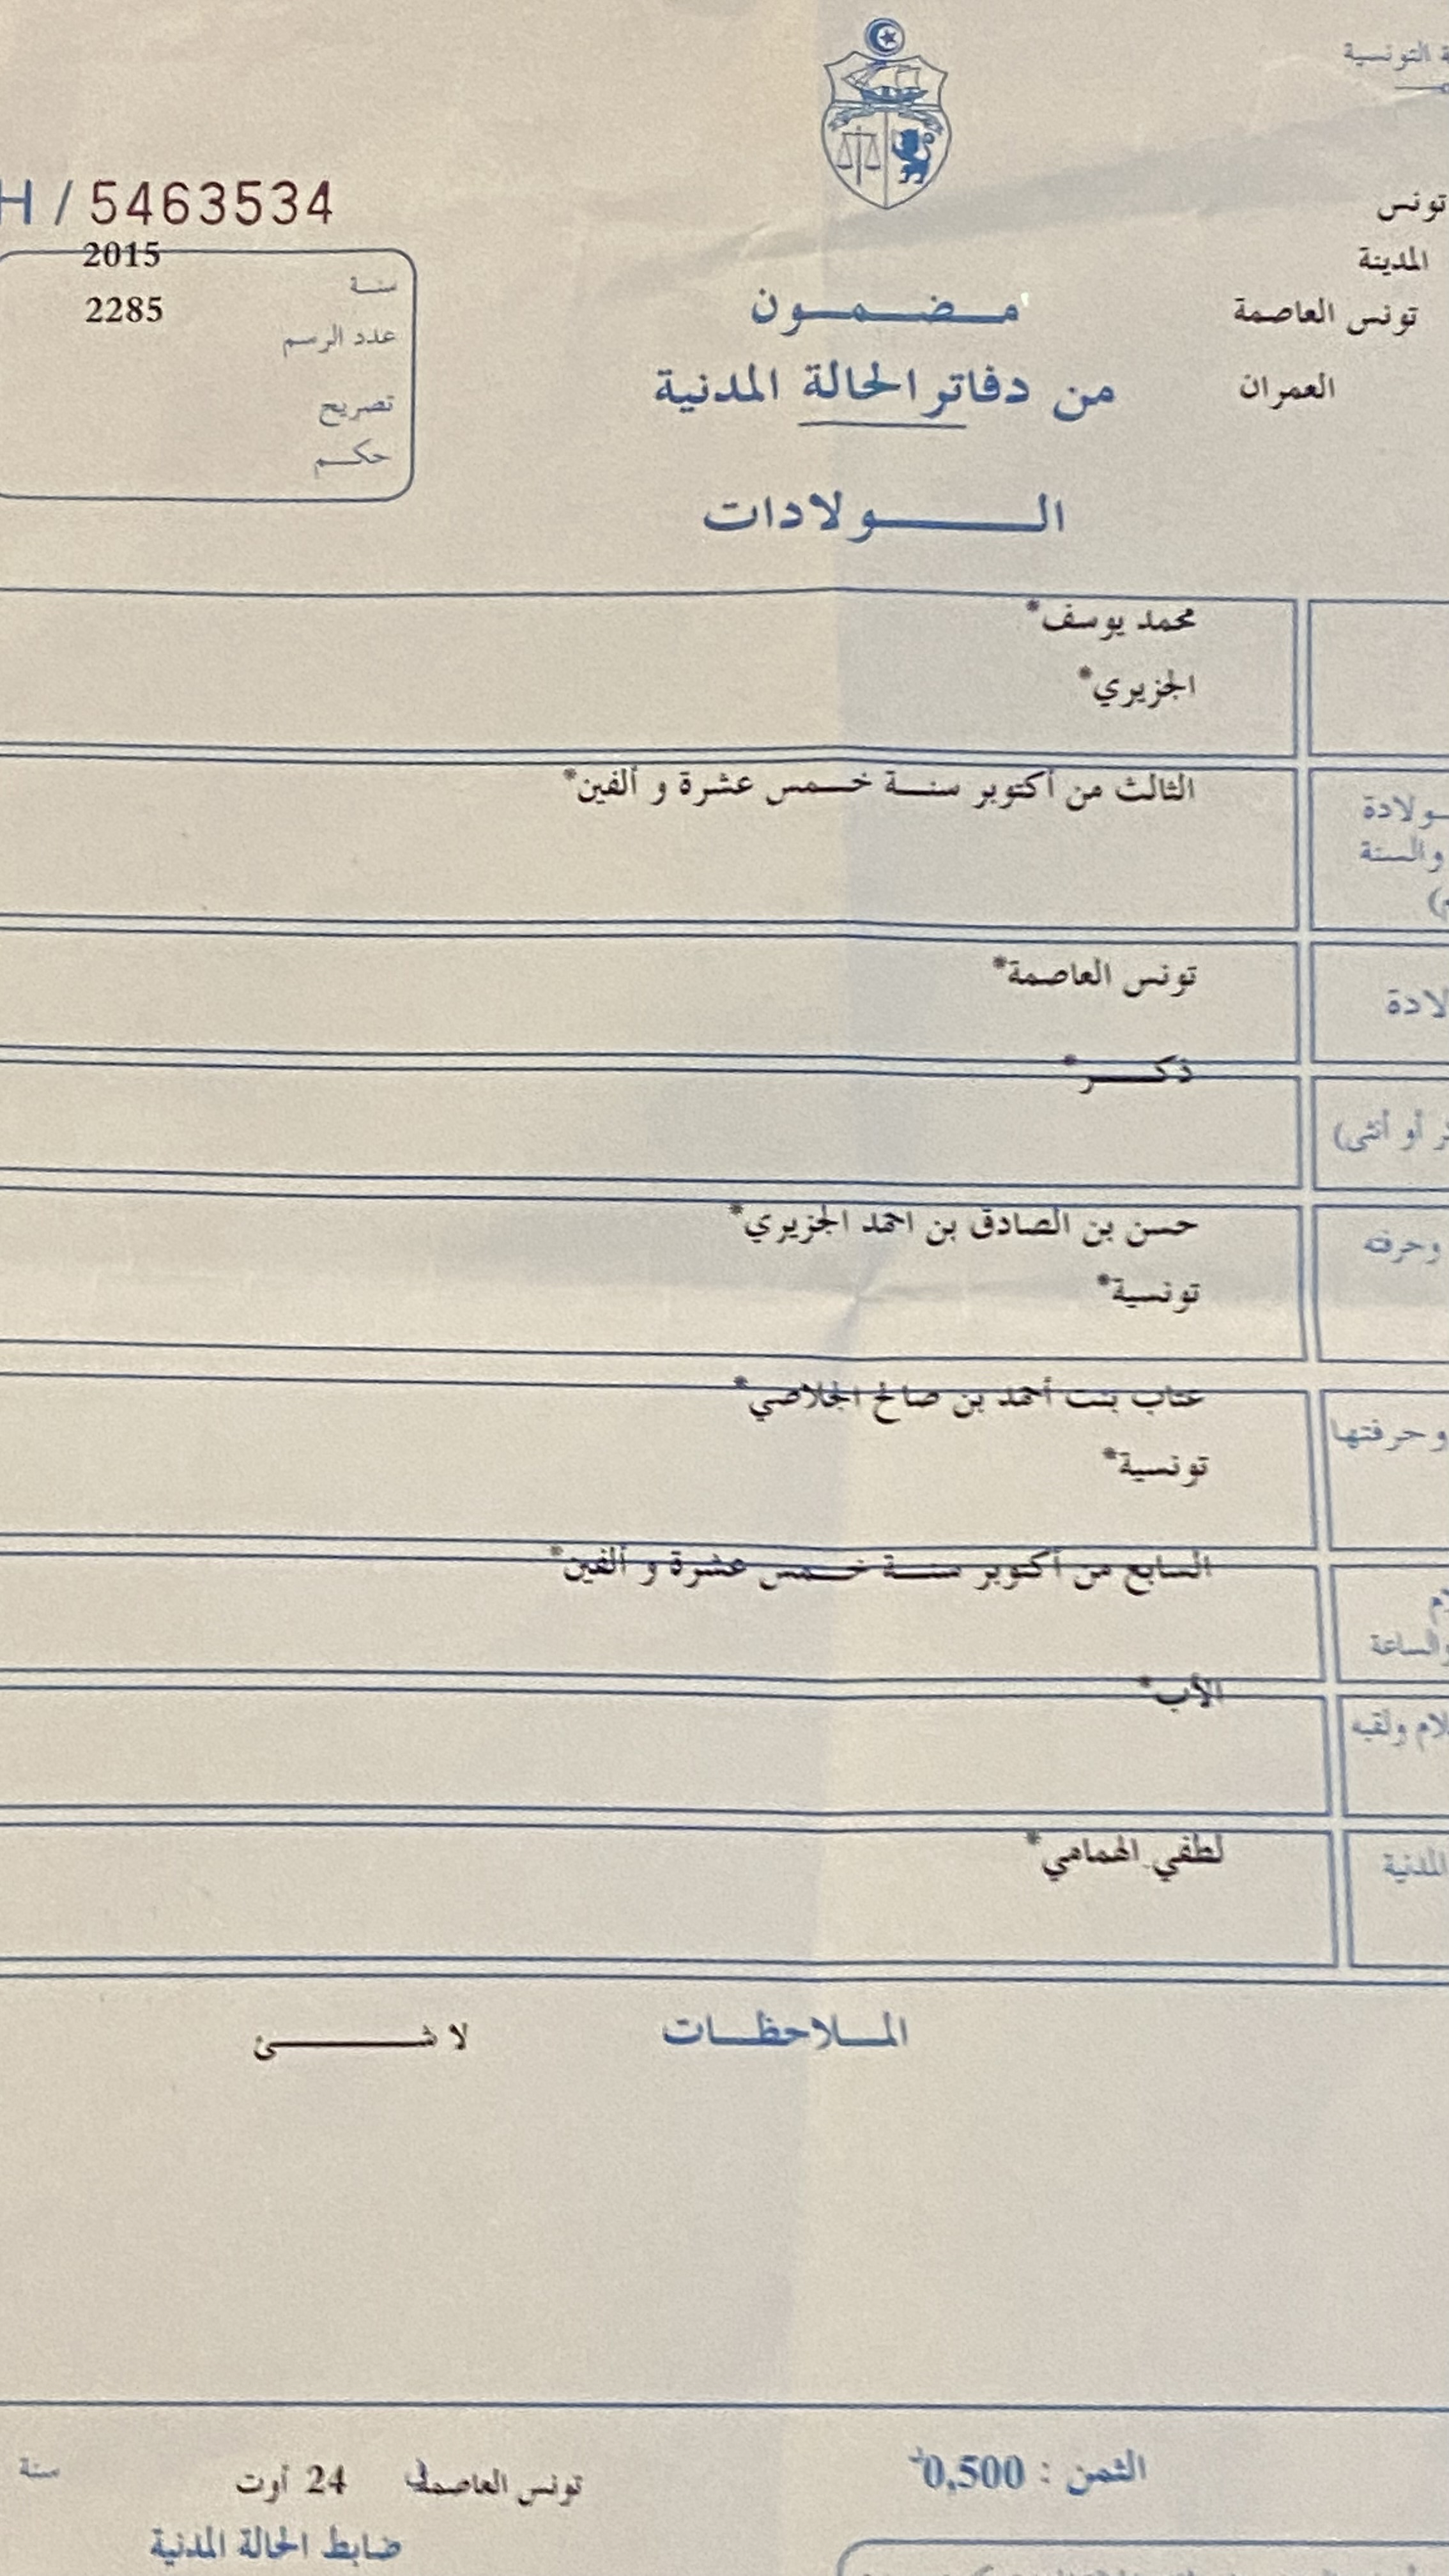 التونسية
H / 5463534
تونس
2015
سنة
المدينة
2285
عدد الرسم
مضمون
تونس العاصمة
تصريح
من دفاتر الحالة المدنية
العمران
حكم
الولادات
محمد يوسف*
الجزيري*
الثالث من أكتوبر سنة خمس عشرة و ألفين*
والسنة
تونس العاصمة*
ذكر*
أو أنثى)
حسن بن الصادق بن احمد الجزيري*
وحرفته
تونسية*
عتاب بنت أحمد بن صالح الجلاصي*
وحرفتها
تونسية*
السابع من أكتوبر سنة خمس عشرة و ألفين*
والساعة
الأب*
ولقبه
لطفي الهمامي*
المدنية
الملاحظات لا شئ
الثمن : 0,500
تونس العاصمة 24 أوت سنة
ضابط الحالة المدنية